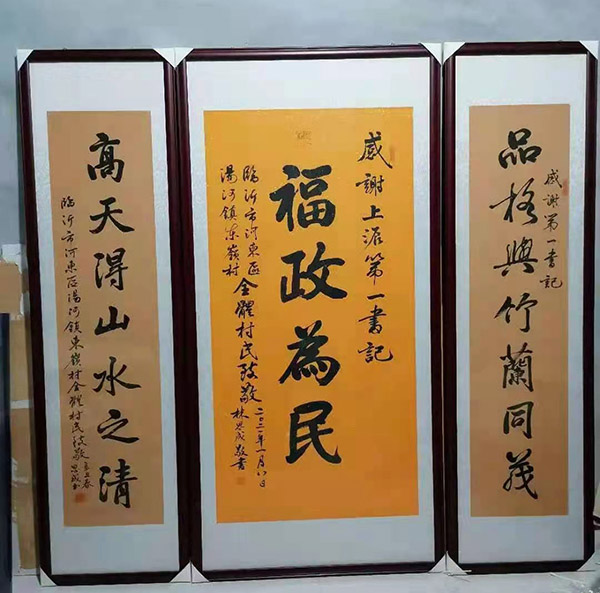 感謝第一書記
品格與竹蘭同茂
感謝上派第一書記
福政為民
臨沂市河東區
湯河鎮東嶺村
全體村民致敬
二〇二一年一月八日
林思成敬書
高天得山水之清
臨沂市河東區湯河鎮東嶺村全體村民致敬
辛丑春
思成書